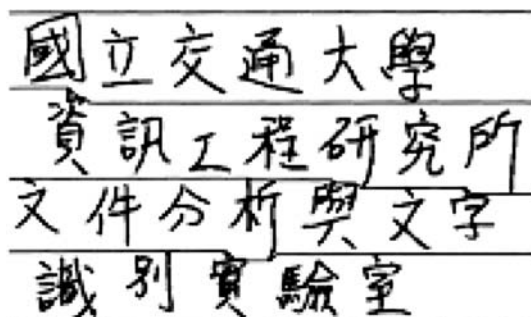 國立交通大學
資訊工程研究所
文件分析與文字
識別實驗室